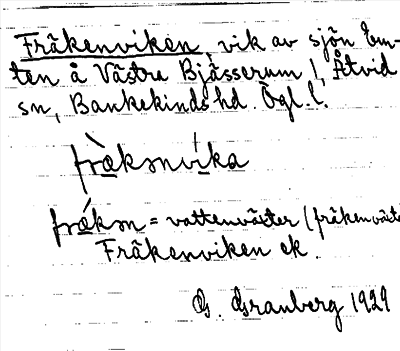 Fräkenviken, vik av sjön Em-
ten å Västra Bjässerum l, Åtvid
sn, Bankekinds hd. Ögl. l.
frækənvíka
frækən = vattenväxter (fräkenväxte
Fräkenviken ek.
G. Granberg 1929